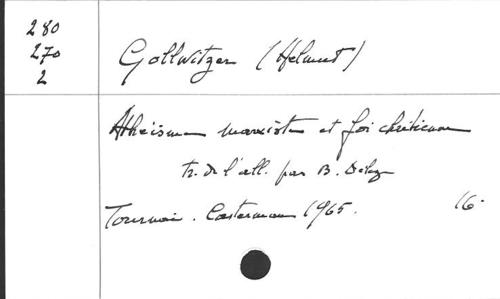 280
270
2
Gollwitzer (Helmut)
Athéisme marxiste et foi chrétienne
tr. de l'all. par B. Delez
Tournai. Casterman 1965. 16.